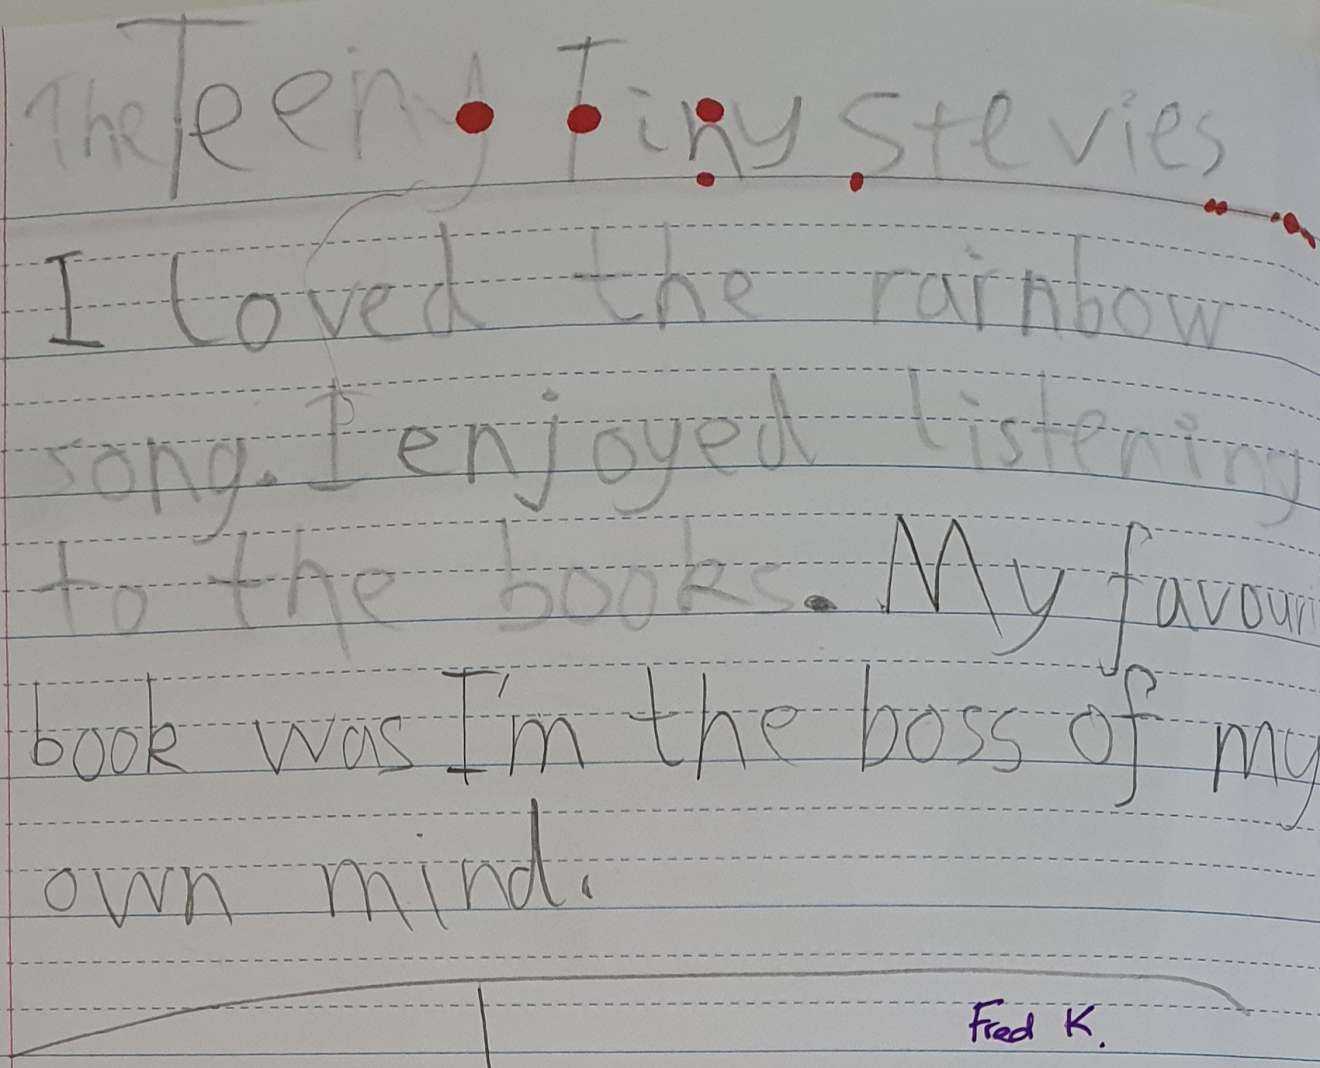 The Teeny Tiny Stevies
I loved the rainbow
song. I enjoyed listening
to the books. My favouri
book was I'm the boss of my
own mind.
Fred K.